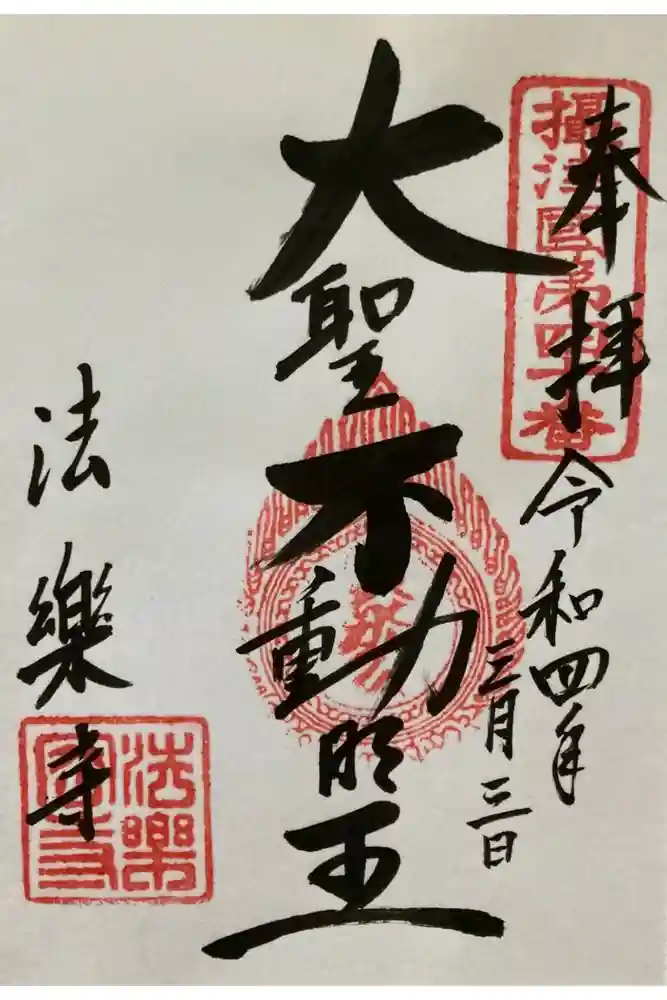 奉拝
摂津国第四十番
令和四年
三月三日
大聖不動明王
法樂寺
法樂
寺